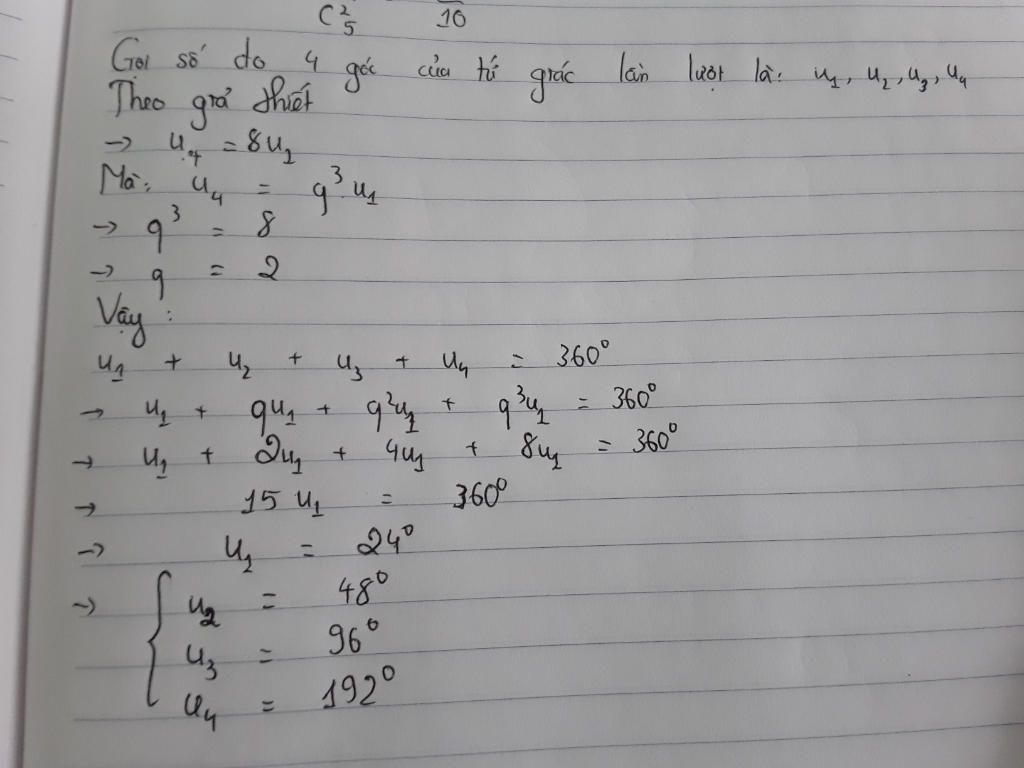 C²₅ 10
Gọi số đo 4 góc của tứ giác lần lượt là: u₁, u₂, u₃, u₄
Theo giả thiết
→ u₄ = 8u₁
Mà: u₄ = q³.u₁
→ q³ = 8
→ q = 2
Vậy:
u₁ + u₂ + u₃ + u₄ = 360⁰
→ u₁ + qu₁ + q²u₁ + q³u₁ = 360⁰
→ u₁ + 2u₁ + 4u₁ + 8u₁ = 360⁰
→ 15 u₁ = 360⁰
→ u₁ = 24⁰
→ { u₂ = 48⁰
u₃ = 96⁰
u₄ = 192⁰